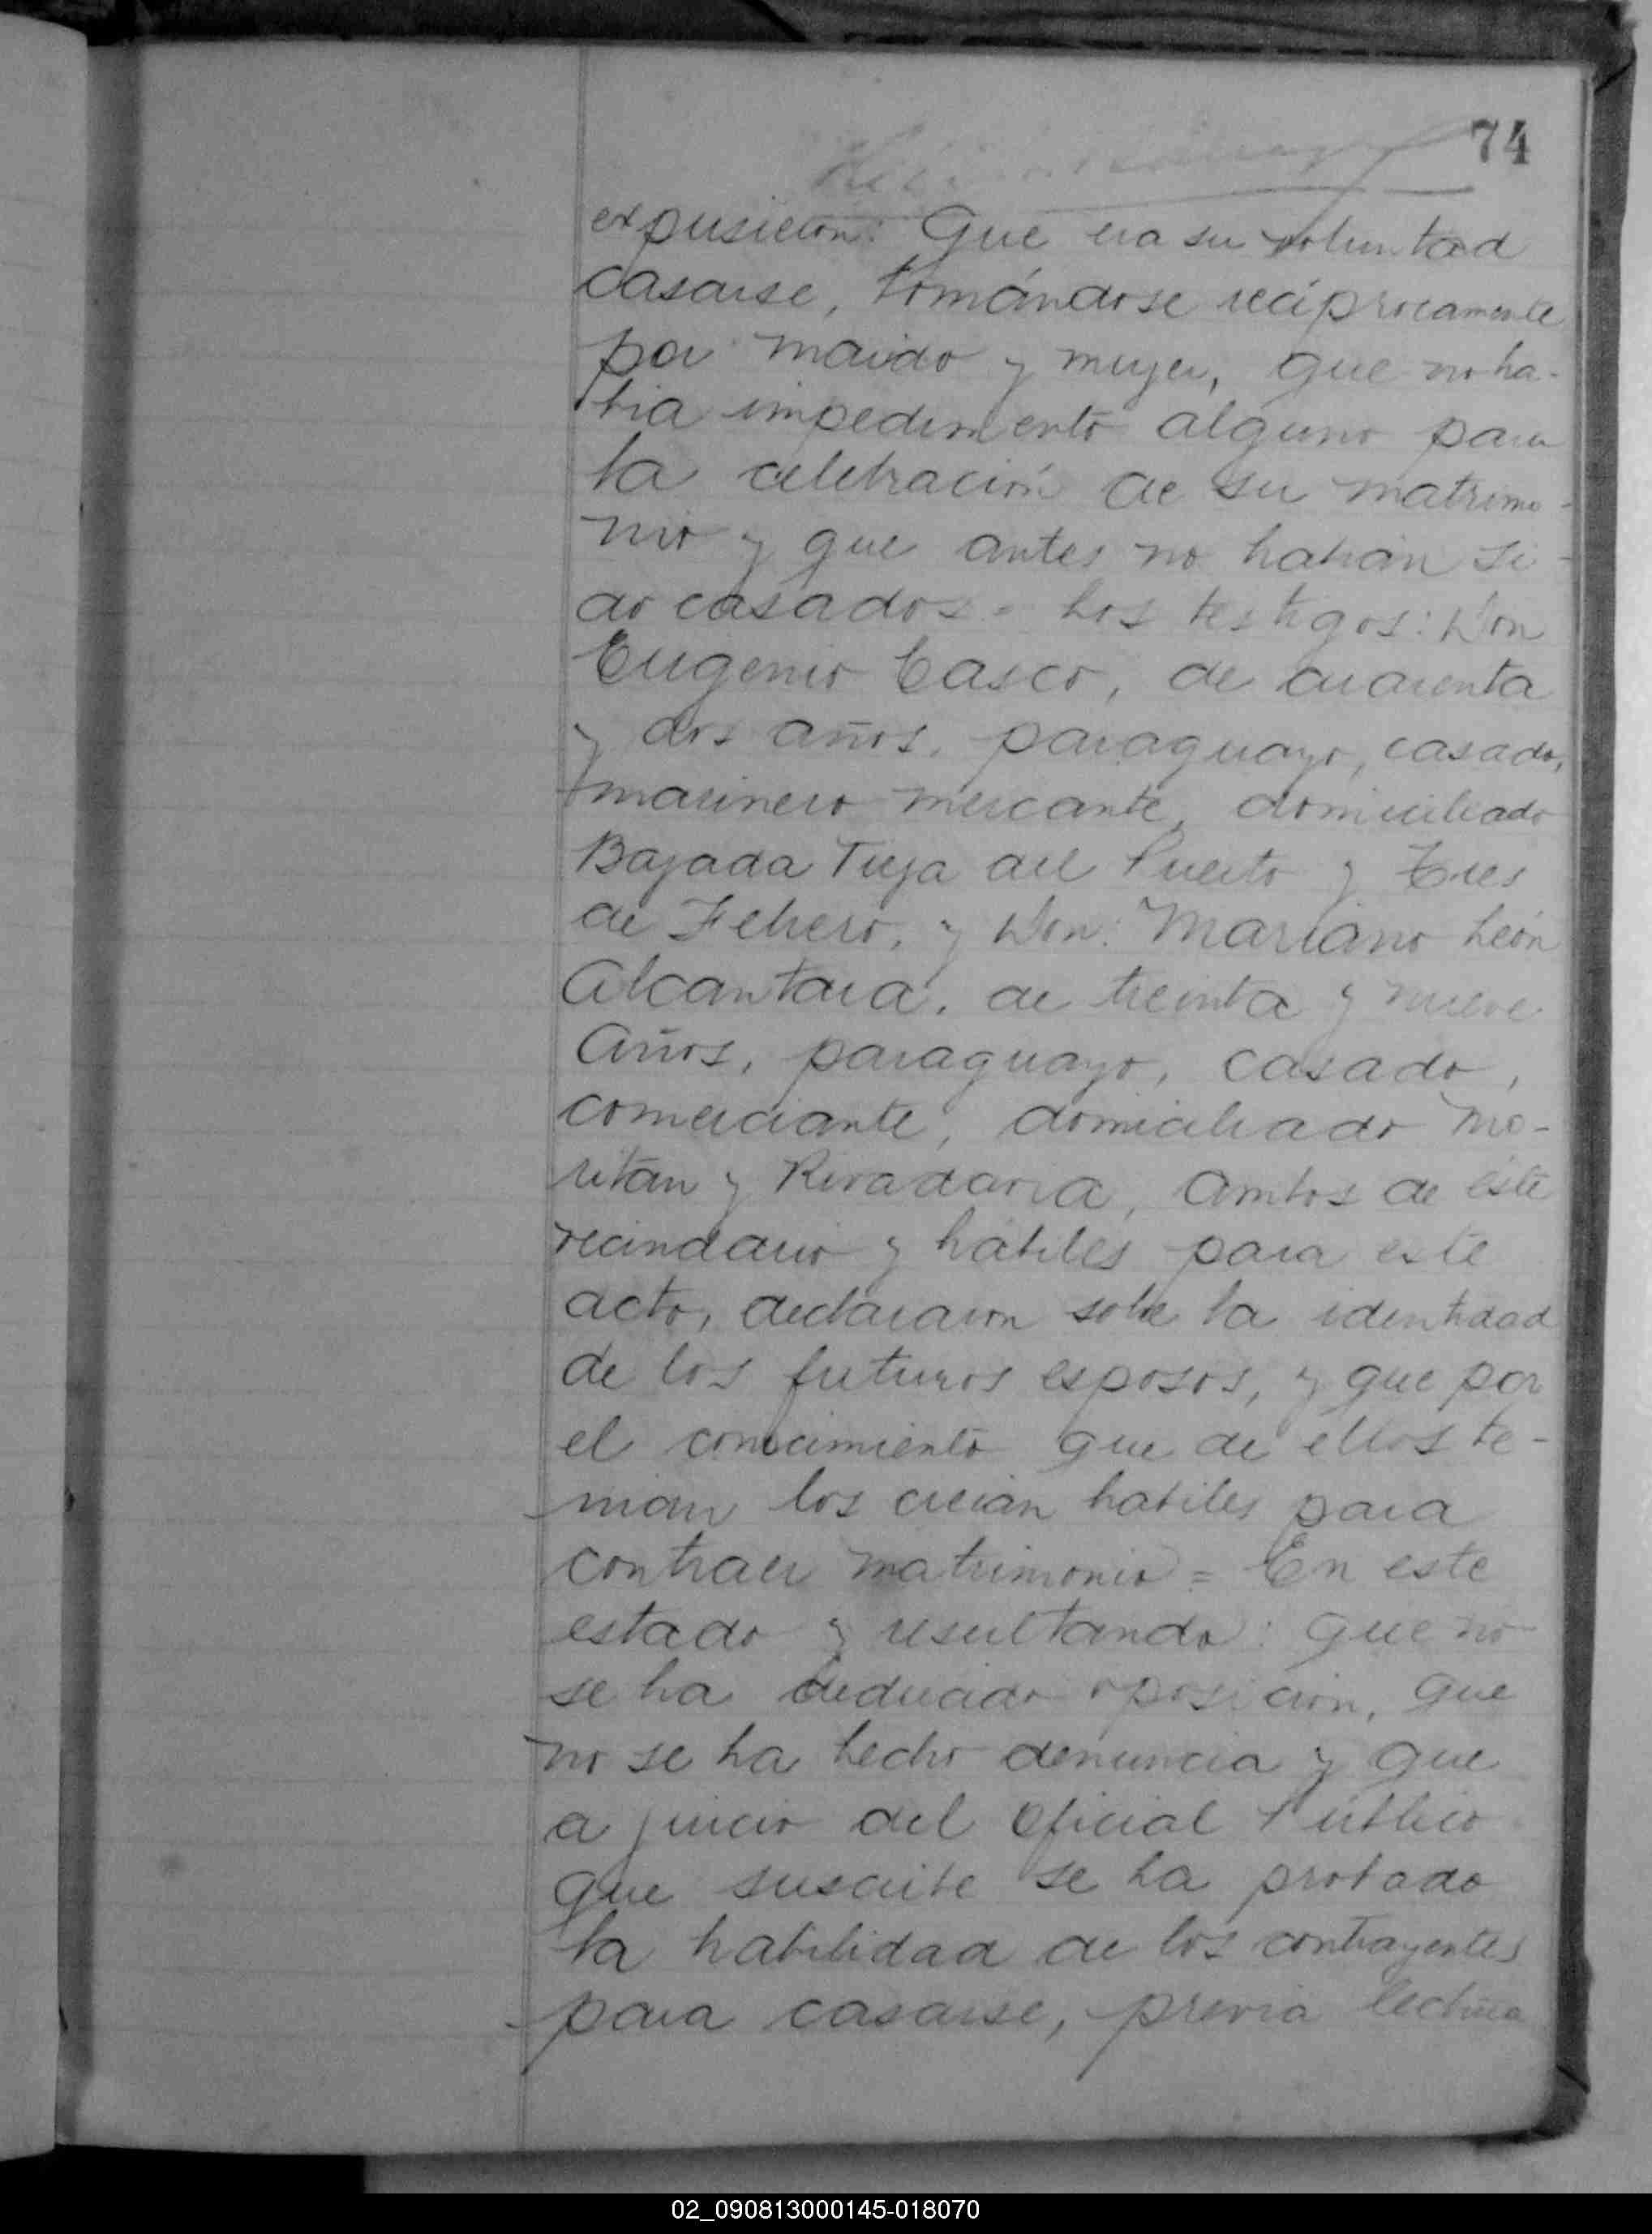 74
expusieron: Que era su voluntad
casarse, tomándose recíprocamente
por marido y mujer, que no ha-
bia impedimento alguno para
la celebración de su matrimo-
nio y que antes no habian si-
do casados. Los testigos: Don
Eugenio Casco, de cuarenta
y dos años, paraguayo, casado,
marinero mercante, domiciliado
Bajada Vieja del Puerto y Tres
de Febrero, y Don: Mariano León
Alcantara, de treinta y nueve
años, paraguayo, casado,
comerciante, domiciliado Mo-
ritán y Rivadavia, ambos de éste
vecindario y hábiles para este
acto, declararon sobre la identidad
de los futuros esposos, y que por
el conocimiento que de ellos te-
nian los creian habiles para
contraer matrimonio = En este
estado y resultando: que no
se ha deducido oposicion, que
no se ha hecho denuncia y que
a juicio del Oficial Público
que suscribe se ha probado
la habilidad de los contrayentes
para casarse, previa lectura
02_090813000145-018070